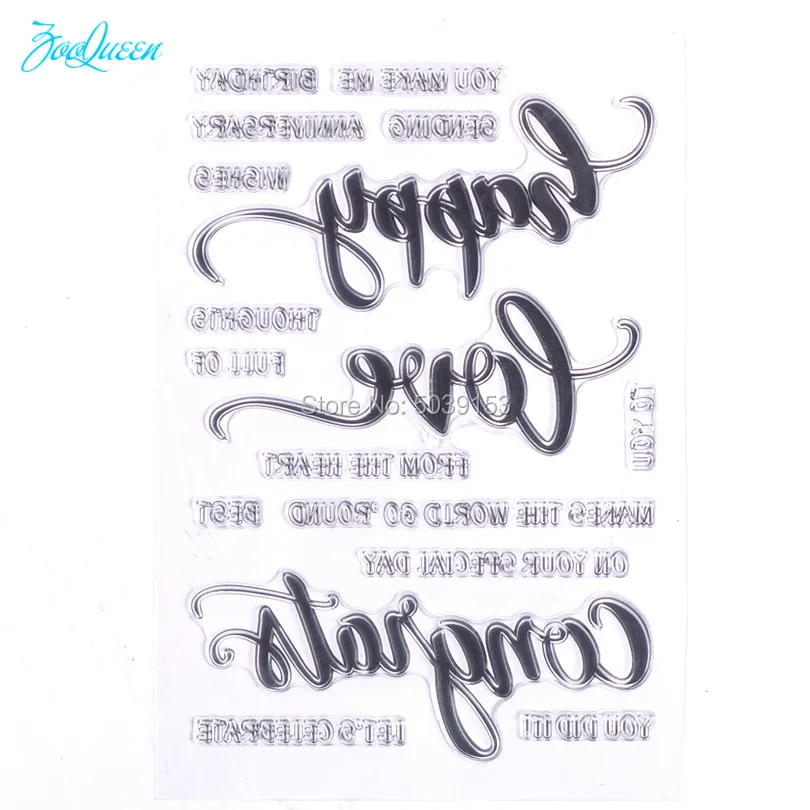 ZooQueen
YOU MAKE ME BIRTHDAY
SENDING ANNIVERSARY
WISHES
happy
THOUGHTS
FULL OF
love
TO YOU
Store No: 5039153
FROM THE HEART
MAKES THE WORLD GO 'ROUND BEST
ON YOUR SPECIAL DAY
congrats
YOU DID IT! LET'S CELEBRATE